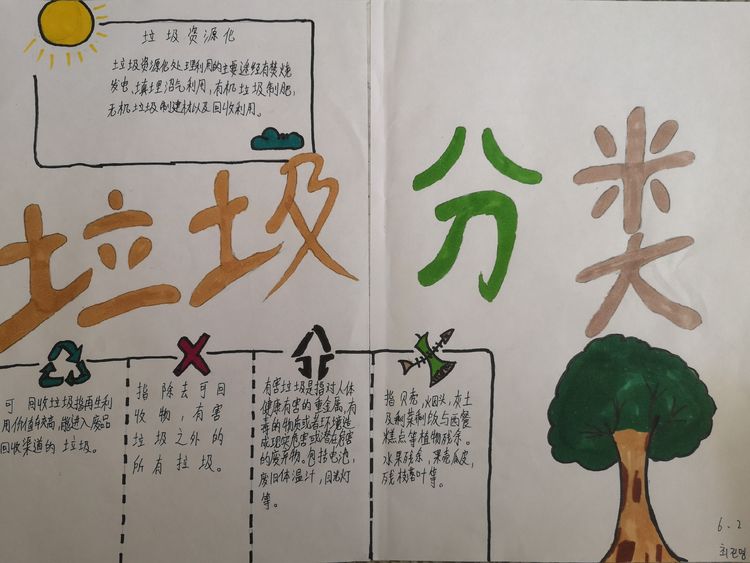 垃圾资源化
垃圾资源化处理利用的主要途经有焚烧
发电、填埋沼气利用,有机垃圾制肥,
无机垃圾制建材以及回收利用。
垃圾分类
可回收垃圾指再生利
用价值较高,能进入废品
回收渠道的垃圾。
指除去可回
收物,有害
垃圾之外的
所有垃圾。
有害垃圾是指对人体
健康有害的重金属、有
毒的物质或者环境造
成现实危害或潜在危害
的废弃物。包括电池,
废旧体温计,日光灯
等。
指贝壳,烟头,灰土
及剩菜剩饭与西餐
糕点等植物残杀.
水果残杀,果壳瓜皮,
残枝落叶等。
6.2
최진영